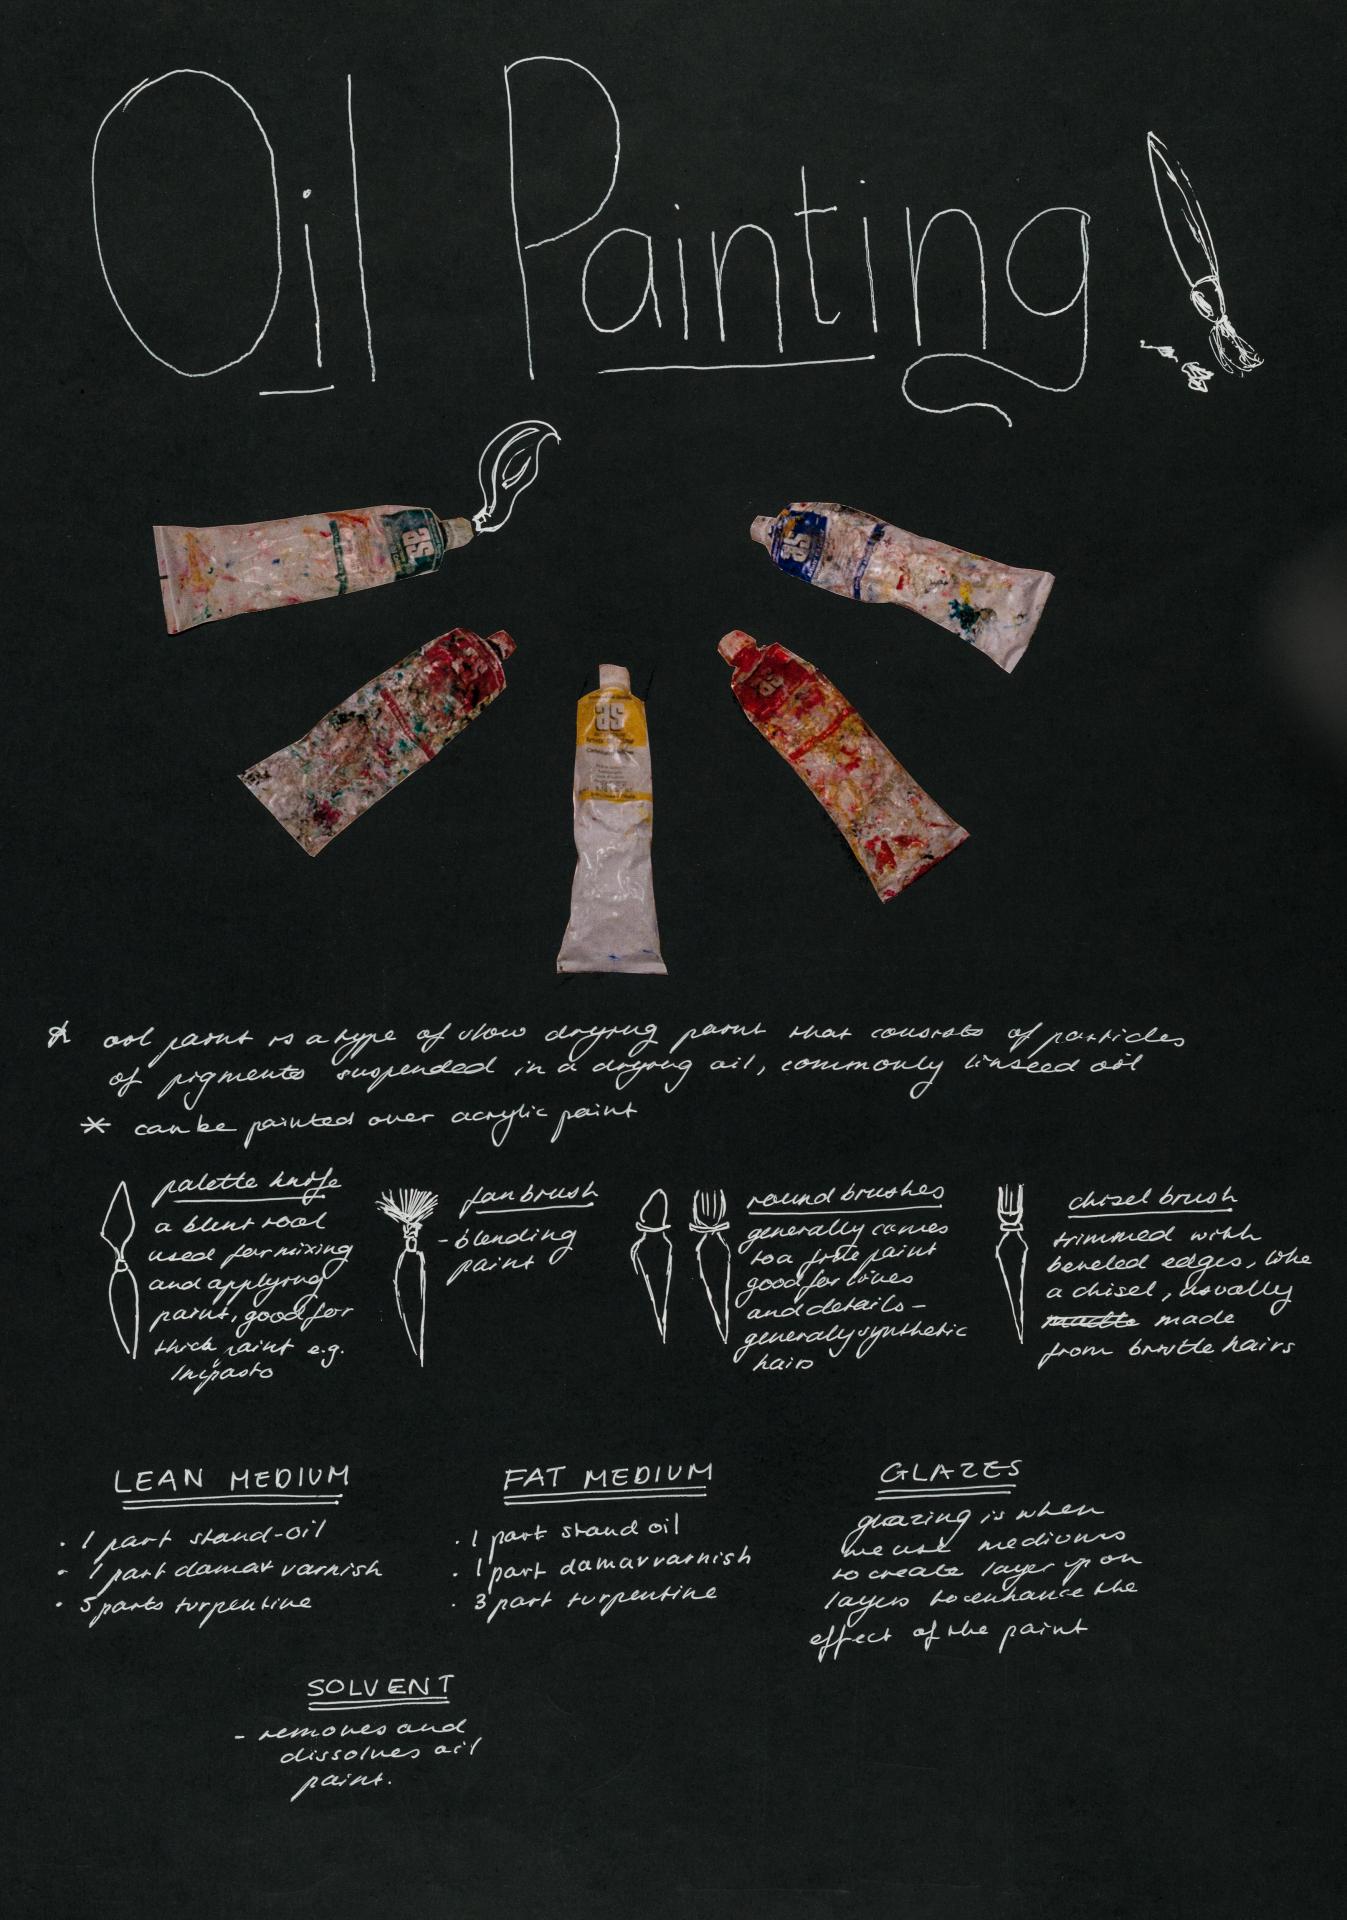 Oil Painting
as
as
as
as
* oil paint is a type of slow drying paint that consists of particles
of pigments suspended in a drying oil, commonly linseed oil
* can be painted over acrylic paint
palette knife
a blunt tool
used for mixing
and applying
paint, good for
thick paint e.g.
Impasto
fan brush
- blending
paint
round brushes
generally comes
to a fine point
good for lines
and details -
generaly synthetic
hairs
chisel brush
trimmed with
beveled edges, like
a chisel, usually
made
from bristle hairs
LEAN MEDIUM
· 1 part stand-oil
· 1 part damar varnish
· 5 parts turpentine
FAT MEDIUM
· 1 part stand oil
· 1 part damar varnish
· 3 part turpentine
GLAZES
glazing is when
we use mediums
to create layer upon
layers to enhance the
effect of the paint
SOLVENT
- removes and
dissolves oil
paint.